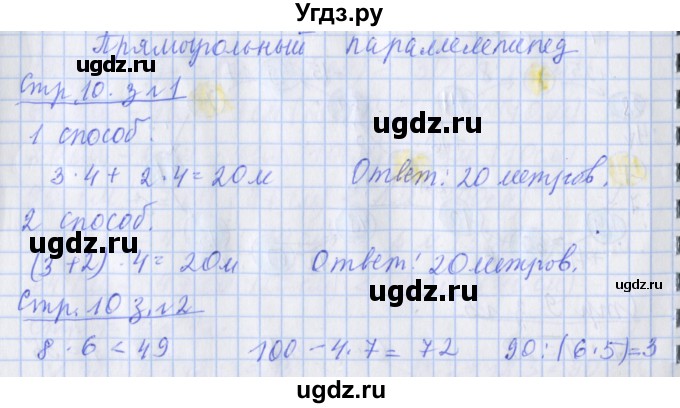 Угдз.ру
Прямоугольный параллелепипед
Стр. 10. з. №1
1 способ.
3·4 + 2·4 = 20 м Ответ: 20 метров.
2 способ.
(3+2)·4 = 20 м Ответ: 20 метров.
Стр. 10 з. №2
8·6 < 49 100 - 4·7 = 72 90:(6·5)=3
ugdz.ru
ugdz.ru
ugdz.ru
ugdz.ru
ugdz.ru
ugdz.ru
ugdz.ru
ugdz.ru
ugdz.ru